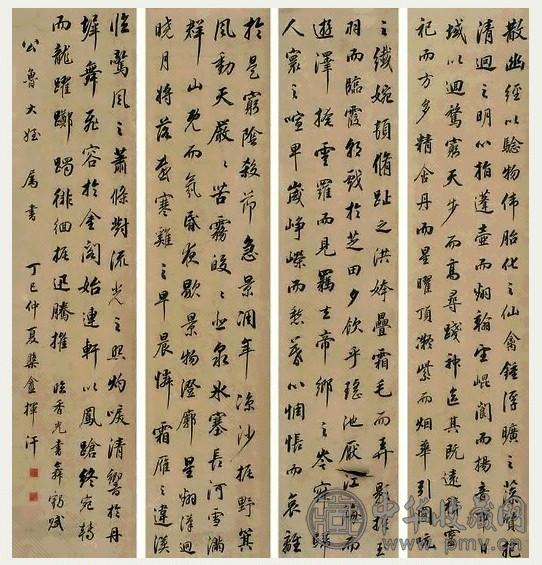 散幽經以驗物偉胎化之仙禽鍾浮曠之藻質抱
清迥之明心指蓬壺而翻翰望崐閬而揚音帀日
域以迴騖窮天步而高尋踐神區其既遠積靈
祀而方多精含丹而星曜頂凝紫而烟華引圓吭
之纖婉頓脩趾之洪姱疊霜毛而弄影振玉
羽而臨霞朝戲於芝田夕飲乎瑤池厭江海而
遊澤掩雲羅而見羈去帝鄉之岑寂歸
人寰之喧卑歲崢嶸而愁暮心惆悵而哀離
於是窮陰殺節急景凋年涼沙振野箕
風動天嚴嚴苦霧皎皎悲泉冰塞長河雪滿
群山既而氛昏夜歇景物澄廓星翻漢迴
曉月將落感寒雞之早晨憐霜雁之違漠
臨驚風之蕭條對流光之照灼唳清響於丹
墀舞飛容於金閣始連軒以鳳蹌終宛轉
而龍躍躑躅徘徊振迅騰摧 臨香光書舞鶴賦
公魯大姪屬書 丁巳仲夏槃盦揮汗
中华收藏网
www.pmv.cn